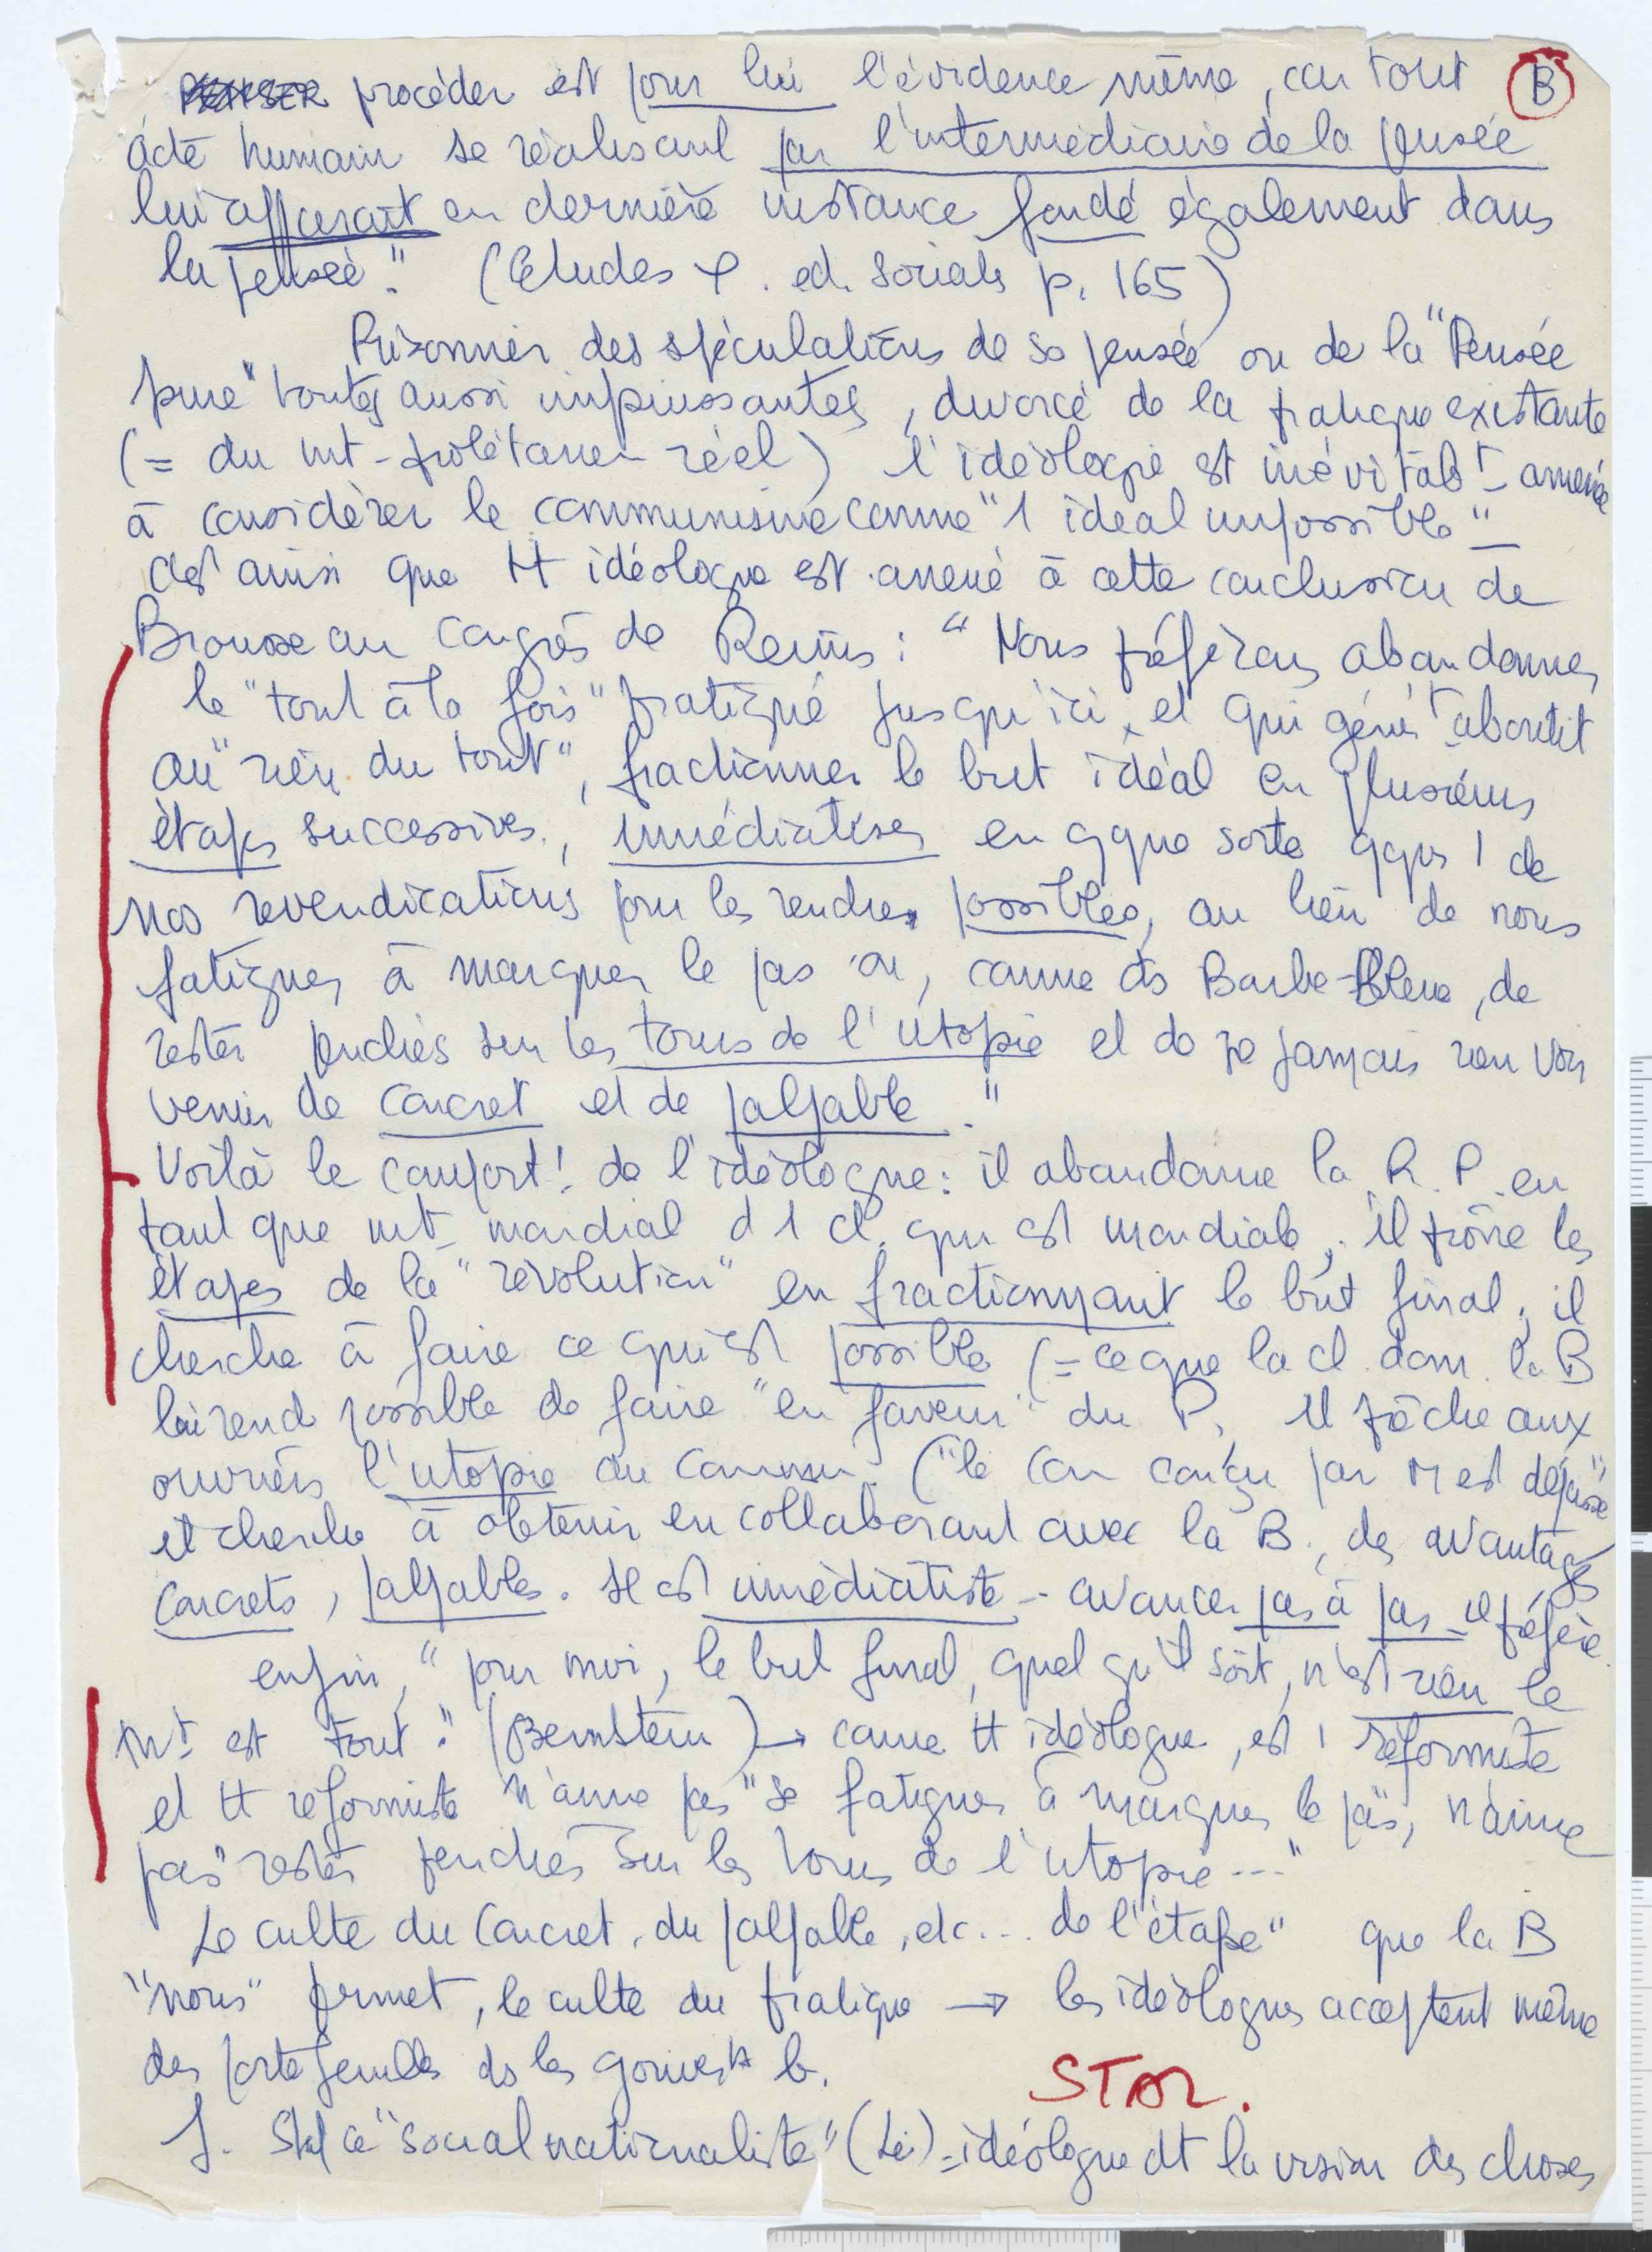 procéder est pour lui l'évidence même, car tout B
acte humain se réalisant par l'intermédiaire de la pensée
lui apparaît en dernière instance fondé également dans
la pensée." (Etudes φ. ed. sociales p. 165)
Prisonnier des spéculations de sa pensée ou de la "Pensée
pure" toutes aussi impuissantes, divorcé de la pratique existante
(= du mt - prolétarien réel) l'idéologie est inévitabt amenée
à considérer le communisme comme "1 idéal impossible" -
c'est ainsi que tt idéologue est amené à cette conclusion de
Brousse au congrès de Reims : "Nous préférons abandonner
le "tout à la fois" pratiqué jusqu'ici et qui génért aboutit
au "rien du tout", fractionner le but idéal en plusieurs
étapes successives, immédiatiser en qque sorte qqes 1 de
nos revendications pour les rendre possibles, au lieu de nous
fatiguer à marquer le pas ou, comme ds Barbe-Bleue, de
rester perchés sur les tours de l'utopie et de ne jamais rien voir
venir de concret et de palpable."
Voilà le confort! de l'idéologue : il abandonne la R.P. en
tant que mt mondial d 1 cl. qui est mondiale ; il prône les
étapes de la "révolution" en fractionnant le but final ; il
cherche à faire ce qui est possible (= ce que la cl. dom. la B
lui rend possible de faire "en faveur" du P. Il prêche aux
ouvriers l'utopie du ("le com conçu par M est dépassé"
et cherche à obtenir en collaborant avec la B., des avantages
concrets, palpables. Il est immédiatiste - avancer pas à pas - il préfère
enfin, "pour moi, le but final, quel qu'il soit, n'est rien le
mt est tout." (Bernstein) → comme tt idéologue, est 1 réformiste
et tt réformiste n'aime pas "se fatiguer à marquer le pas, n'aime
pas "rester perchés sur les tours de l'utopie..."
Le culte du concret, du palpable, etc... de l'"étape" que la B
"nous" permet, le culte du pratique → les idéologues acceptent même
des portefeuilles ds les gouvets b.
STAL.
J. Stal ce "social nationaliste" (Lé) = idéologue dt la vision des choses